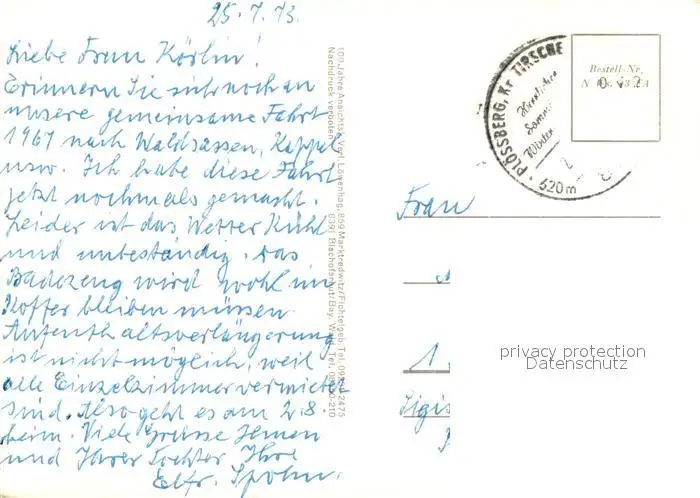 25.7.73.
Liebe Frau Körlin!
Erinnern Sie sich noch an
unsere gemeinsame Fahrt
1967 nach Waldsassen, Kappel
usw. Ich habe diese Fahrt
jetzt nochmals gemacht.
Leider ist das Wetter kühl
und unbeständig. Das
Badezeug wird wohl im
Koffer bleiben müssen.
Aufenthaltsverlängerung
ist nicht möglich, weil
alle Einzelzimmer vermietet
sind. Also geht es am 2.8.
heim. Viele Grüsse Ihnen
und Ihrer Tochter Ihre
Elfr. Spohn.
100 Jahre Ansichtsk.-Verl. Löwenhag, 859 Marktredwitz/Fichtelgeb. Tel.
Nachdruck verboten
8391 Bischofsreut/Bay. Wald, Tel.
PLÖSSBERG, Kr. TIRSCHE
620m
Bestell-Nr.
Frau
1
privacy protection
Datenschutz